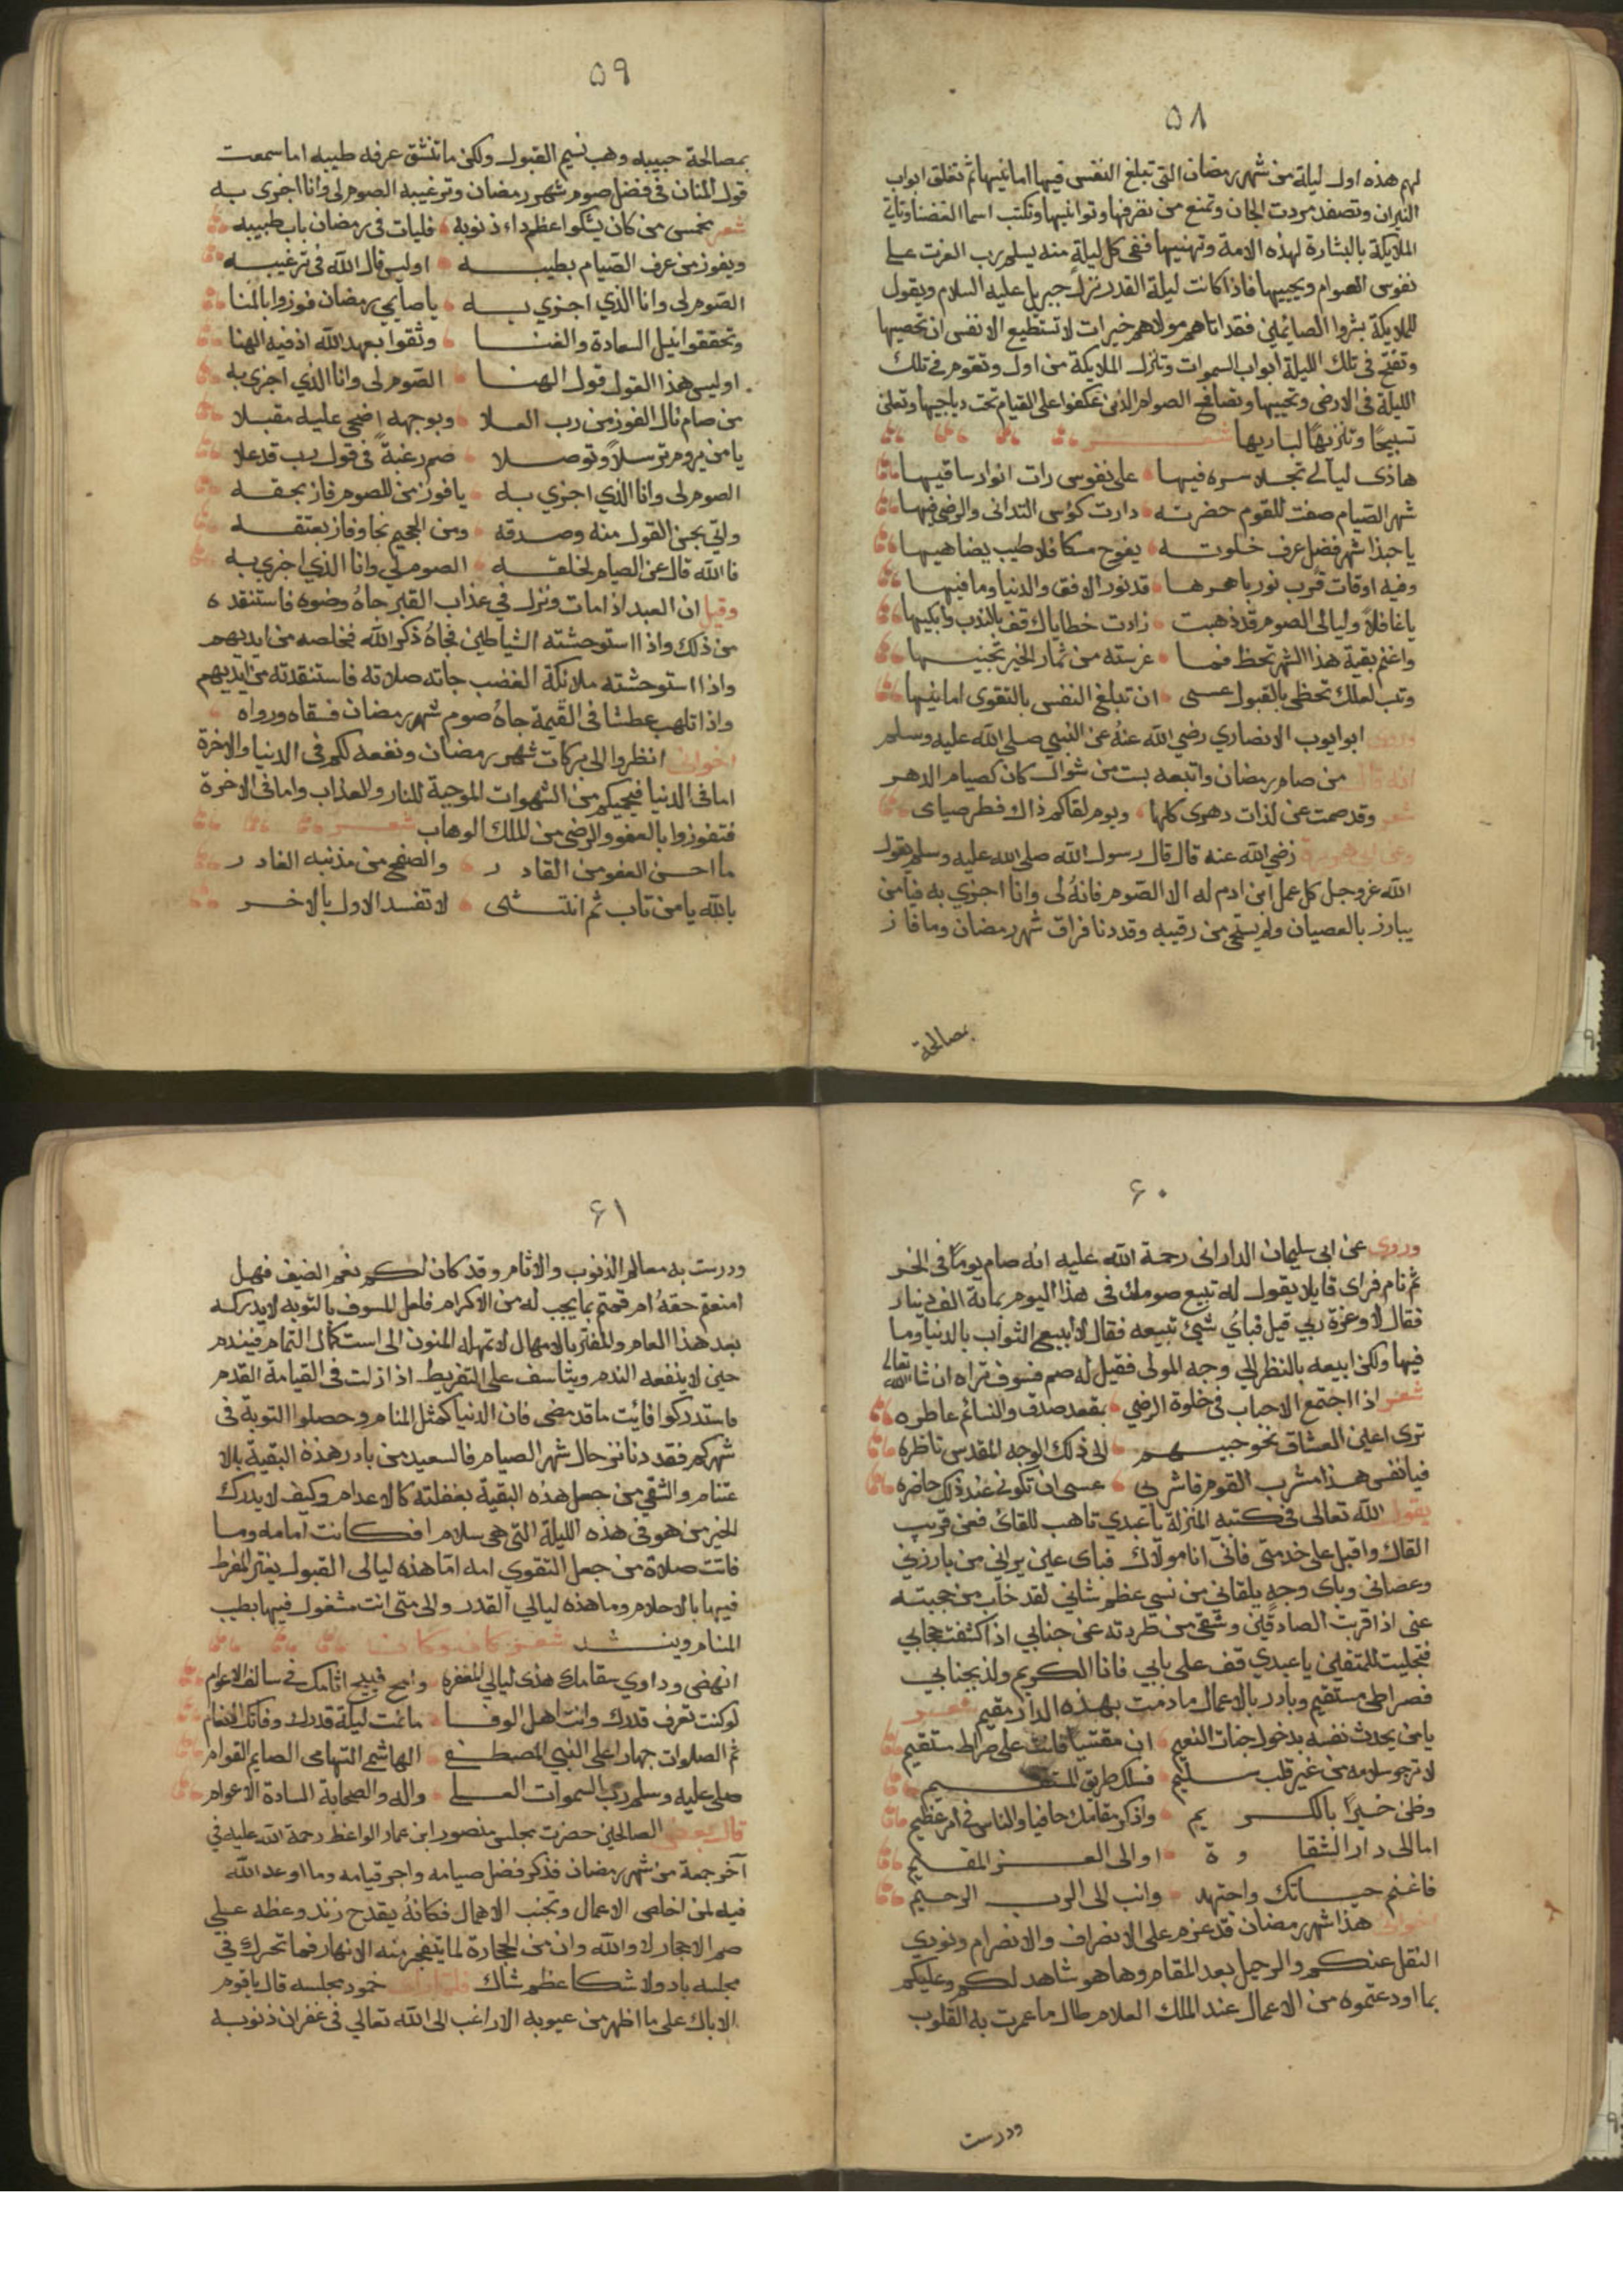 ٥٨
لهم هذه اول ليلة من شهر رمضان التي تبلغ النفس فيها امانيها ثم تغلق ابواب
النيران وتصفد مردت الجان وتمنع من تصرفها وتوانيها وتكتب اسما العتقا وتاتي
الملايكة بالبشارة لهذه الامة وتهنيها ففي كل ليلة منه يسلم رب العزت علي
نفوس الصوام ويحييها فاذا كانت ليلة القدر نزل جبريل عليه السلام ويقول
للملايكة بشروا الصايمين فقد اتاهم مولاهم خيرات لا تستطيع الانفس ان تحصيها
وتفتح في تلك الليلة ابواب السموات وتنزل الملايكة من اول وتقوم في تلك
الليلة في الارض وتحييها وتصافح الصوام الذين عكفوا على القيام تحت دياجيها وتعلن
تسبيحًا وتنزيهًا لباريها شعر
هاذي ليالي تجلا سره فيها على نفوس رات انوار ساقيها
شهر الصيام صفت للقوم حضرته دارت كؤس التداني والرضى فيها
يا حبذا شهر فضل عرف خلوته يفوح مسكا فلا طيب يضاهيها
وفيه اوقات قرب نورباهرها قد نور الافق والدنيا وما فيها
يا غافلاً وليالي الصوم قد ذهبت زادت خطاياك قف بالندب وابكيها
واغنم بقية هذا الشهر تحظ فما غرسته من ثمار الخير تجنيها
وتب لعلك تحظى بالقبول عسى ان تبلغ النفس بالتقوى امانيها
وروى ابو ايوب الانصاري رضي الله عنه عن النبي صلى الله عليه وسلم
انه قال من صام رمضان واتبعه بست من شوال كان كصيام الدهر
شعر وقد صمت عن لذات دهري كلها ويوم لقاكم ذاك فطر صيامي
وعن ابي هريرة رضي الله عنه قال قال رسول الله صلى الله عليه وسلم يقول
الله عز وجل كل عمل ابن ادم له الا الصوم فانه لي وانا اجزي به فيا من
يبارز بالعصيان ولم يستحي من رقيبه وقد دنا فراق شهر رمضان وما فاز
بمصالحة
٥٩
بمصالحة حبيبه وهب نسيم القبول ولكن ما تنشق عرفه طيبه اما سمعت
قول المنان في فضل صوم شهر رمضان وترغيبه الصوم لي وانا اجزى به
شعر بخمس من كان يشكوا عظم داء ذنوبه فليات في رمضان باب طبيبه
ويفوز من عرف الصيام بطيبه اوليس قال الله في ترغيبه
الصوم لي وانا الذي اجزي به يا صايمي رمضان فوزوا بالمنا
وتحققوا نيل السعادة والغنا وثقوا بعهد الله اذ فيه الهنا
اوليس هذا القول قول الهنا الصوم لي وانا الذي اجزي به
من صام نال الفوز من رب العلا وبوجهه اضحى عليه مقبلا
يا من يروم توسلاً وتوصلا صم رغبة في قول رب قد علا
الصوم لي وانا الذي اجزي به يا فوز من للصوم فاز بحقه
واتى بحسن القول منه وصدقه ومن الجحيم نجا وفاز بعتقه
فالله قال عن الصيام لخلقه الصوم لي وانا الذي اجزي به
وقيل ان العبد اذا مات ونزل في عذاب القبر جاه وضوه فاستنقده
من ذلك واذا استوحشته الشياطين فجاه ذكر الله فخلصه من ايديهم
واذا استوحشته ملائكة الغضب جاته صلاته فاستنقدته من ايديهم
واذا تلهب عطشا في القيمة جاه صوم شهر رمضان فسقاه ورواه
اخواني انظروا الى بركات شهر رمضان ونفعه لكم في الدنيا والاخرة
اما في الدنيا فيحميكم من الشهوات الموجبة للنار والعذاب واما في الاخرة
فتفوزوا بالعفو والرضى من الملك الوهاب شعر
ما احسن العفو من القادر والصفح من مذنبه الغادر
بالله يا من تاب ثم انتشى لا تفسد الاول بالاخر
٦٠
وروي عن ابي سليمان الداراني رحمة الله عليه انه صام يوماً في الحر
ثم نام فراى قايلا يقول له تبيع صومك في هذا اليوم بماية الف دينار
فقال لا وعزة ربي قيل فباي شيئ تبيعه فقال لا ابيع الثواب بالدنيا وما
فيها ولكن ابيعه بالنظر الي وجه المولى فقيل له صم فسوف تراه ان شا الله تعالى
شعر اذا اجتمع الاحباب في خلوة الرضي بمقعد صدق والنسائم عاطره
ترى اعين العشاق نحو حبيبهم الى ذلك الوجه المقدس ناظره
فيا نفس هذا مشرب القوم فاشربي عسى ان تكوني عند ذلك حاضره
يقول الله تعالى في كتبه المنزلة يا عبدي تاهب للقائ فعن قريب
القاك واقبل على خدمتي فاني انا مولاك فباى عين يراني من بارزني
وعصاني وباى وجه يلقاني من نسي عظم شاني لقد خاب من حجبته
عني اذا قربت الصادقين وشقى من طردته عن جنابي اذا كشفت حجابي
فتجليت للمتقين يا عبدي قف على بابي فانا الكريم ولذ بجنابي
فصراطي مستقيم وبادر بالاعمال ما دمت بهذه الدار مقيم شعر
يا من يحدث نفسه بدخول جنات النعيم ان مقتنيا فانت على صراط مستقيم
لا ترجو سلامه من غير قلب سليم فسلك طريق المستقيم
وظن خيراً بالكريم واذكر مقامك حافيا والناس في امر عظيم
اما الى دار الشقاوة او الى العز المقيم
فاغنم حياتك واجتهد وانب الى الرب الرحيم
اخواني هذا شهر رمضان قد عزم على الانصراف والانصرام ونودي
النقل عنكم والرحيل بعد المقام وها هو شاهد لكم وعليكم
بما اودعتموه من الاعمال عند الملك العلام طال ما عمرت به القلوب
ودرست
٦١
ودرست به معالم الذنوب والاثام وقد كان لكم نعم الضيف فهل
امنعتم حقه ام قمتم بما يجب له من الاكرام فلعل المسوف بالتوبه لا يدركه
بعد هذا العام والمغتر بالامهال لا تمهله المنون الى استكمال التمام فيندم
حين لا ينفعه الندم ويتاسف على التفريط اذا زلت في القيامة القدم
فاستدركوا فائت ما قد مضى فان الدنيا كمثل المنام وحصلوا التوبة في
شهركم فقد دنا نرحال شهر الصيام فالسعيد من بادر هذه البقية بالا
غتنام والشقي من جعل هذه البقية بغفلته كالاعدام وكيف لا يدرك
الخير من هو في هذه الليلة التي هي سلام افكانت امامه وما
فاتت صلاة من جعل التقوي امه اما هذه ليالى القبول يغتر المفرط
فيها بالاحلام وما هذه ليالي القدر والى متى انت مشغول فيها بطيب
المنام وينشد شعر كان وكان
انهض وداوي سقامك هذي ليالي المغفره وامح قبيح اثامك في سالف الاعوام
لو كنت تعرف قدرك وانت اهل الوفا ما نمت ليلة قدرك وفاتك الانعام
ثم الصلوات جهارا على النبي المصطفى الهاشمي التهامى الصايم القوام
صلى عليه وسلم رب السموات العلي واله والصحابة السادة الاعوام
قال بعض الصالحين حضرت مجلس منصور ابن عمار الواعظ رحمة الله عليه في
آخر جمعة من شهر رمضان فذكر فضل صيامه واجر قيامه وما اوعد الله
فيه لمن اخلص الاعمال وتجنب الاهمال فكانه يقدح زند وعظه على
صم الاحجار لا والله وان من الحجارة لما يتفجر منه الانهار فما تحرك في
مجلسه باد ولا شكا عظم شاك فلما راى خمود مجلسه قال يا قوم
الا باك على ما اظهر من عيوبه الا راغب الى الله تعالي في غفران ذنوبه